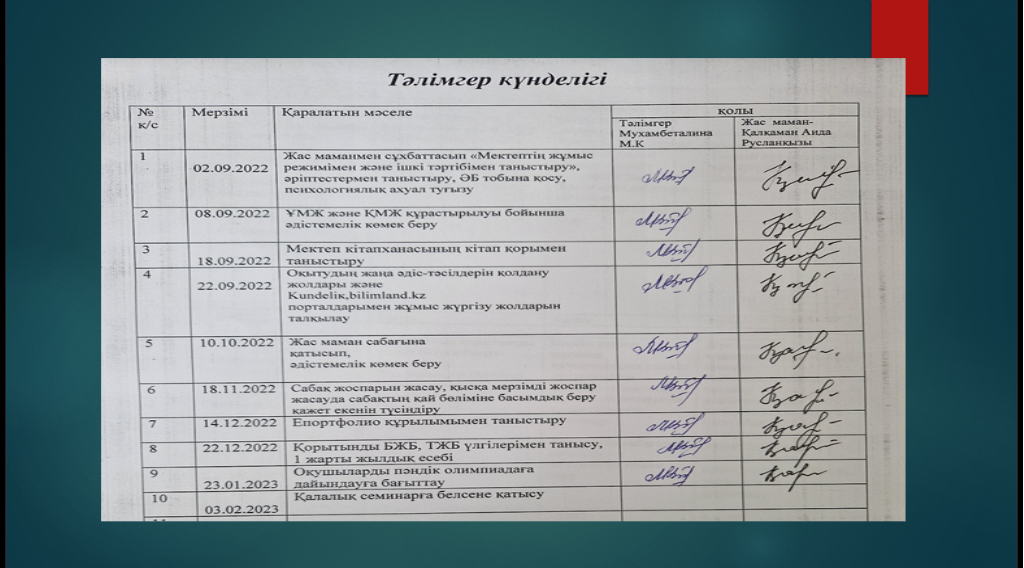 Тәлімгер күнделігі
№ Мерзімі Қаралатын мәселе қолы
к/с Тәлімгер Жас маман-
Мухамбеталина Қалкаман Аида
М.К Русланқызы
1 Жас маманмен сұхбаттасып «Мектептің жұмыс
02.09.2022 режимімен және ішкі тәртібімен таныстыру»,
әріптестермен таныстыру, ӘБ тобына қосу,
психологиялық ахуал туғызу
2 08.09.2022 ҰМЖ және ҚМЖ құрастырылуы бойынша
әдістемелік көмек беру
3 Мектеп кітапханасының кітап қорымен
18.09.2022 таныстыру
4 Оқытудың жаңа әдіс-тәсілдерін қолдану
22.09.2022 жолдары және
Kundelik,bilimland.kz
порталдарымен жұмыс жүргізу жолдарын
талқылау
5 10.10.2022 Жас маман сабағына
қатысып,
әдістемелік көмек беру
6 18.11.2022 Сабақ жоспарын жасау, қысқа мерзімді жоспар
жасауда сабақтың қай бөліміне басымдық беру
қажет екенін түсіндіру
7 14.12.2022 Епортфолио құрылымымен таныстыру
8 22.12.2022 Қорытынды БЖБ, ТЖБ үлгілерімен танысу,
1 жарты жылдық есебі
9 Оқушыларды пәндік олимпиадаға
23.01.2023 дайындауға бағыттау
10 Қалалық семинарға белсене қатысу
03.02.2023